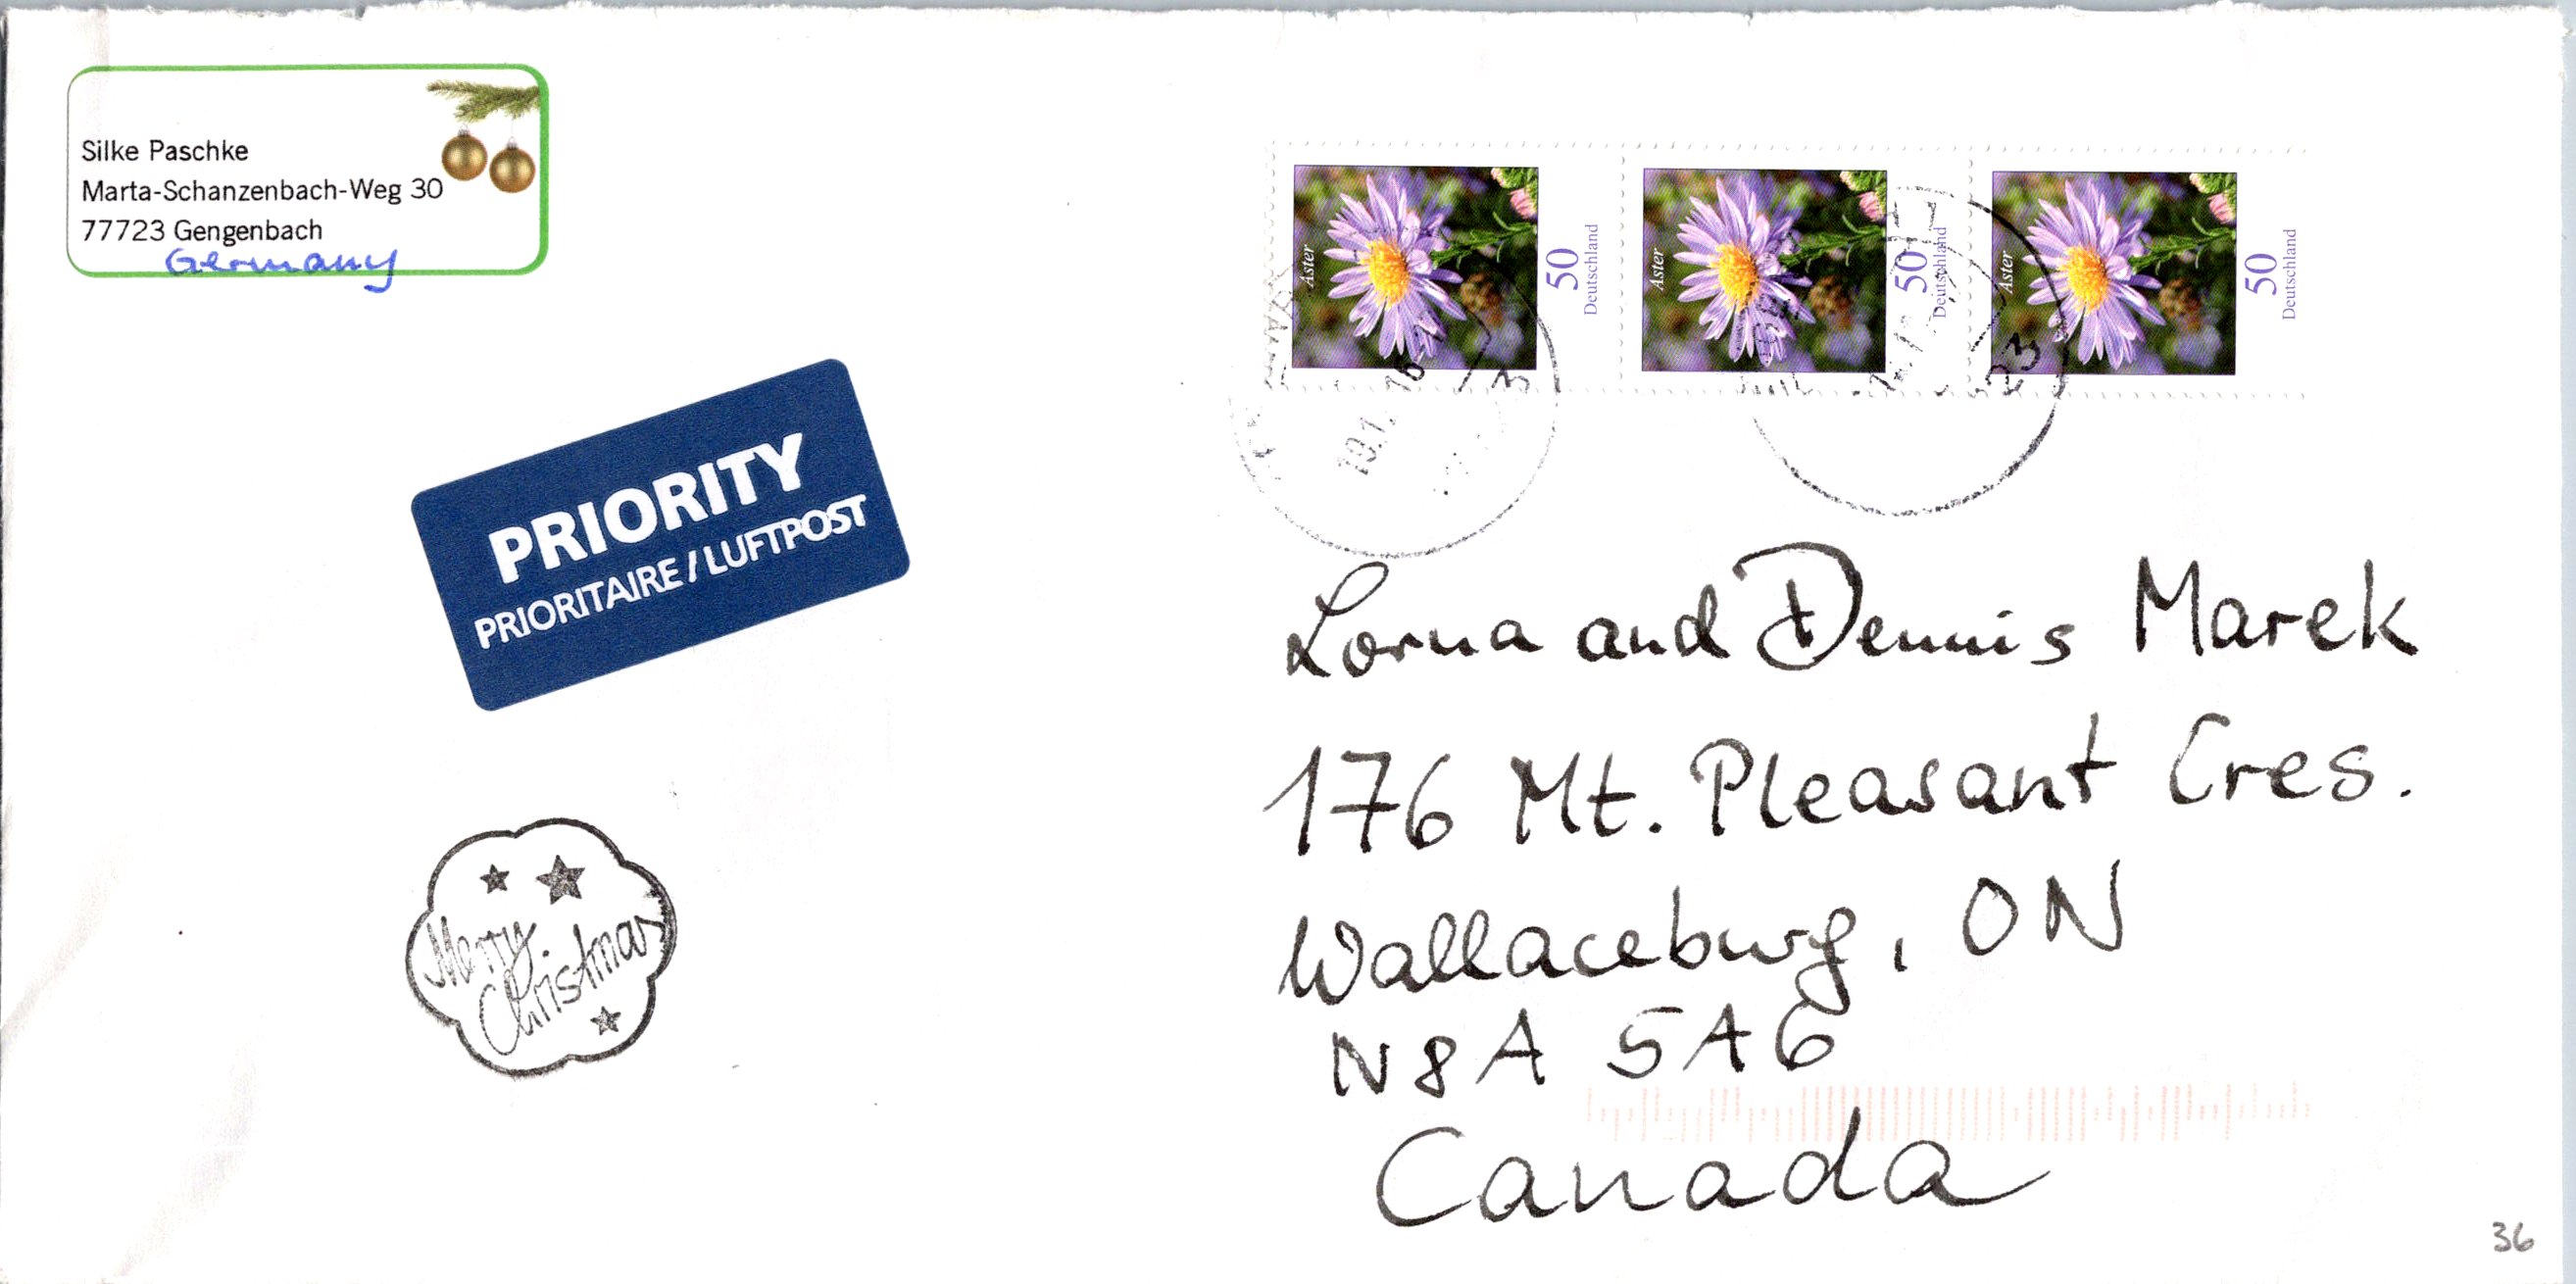 Silke Paschke
Marta-Schanzenbach-Weg 30
77723 Gengenbach
Germany
Aster
50
Deutschland
Aster
50
Deutschland
Aster
50
Deutschland
PRIORITY
PRIORITAIRE / LUFTPOST
Merry
Christmas
Lorna and Dennis Marek
176 Mt. Pleasant Cres.
Wallaceburg, ON
N8A 5A6
Canada
36